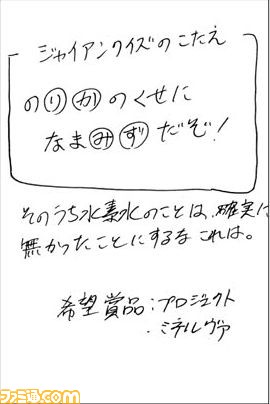 ジャイアンクイズのこたえ
のりかのくせに
なまみずだぞ!
そのうち水素水のことは、確実に
無かったことにするな これは。
希望賞品:プロジェクト
ミネルヴァ
ファミ通.com